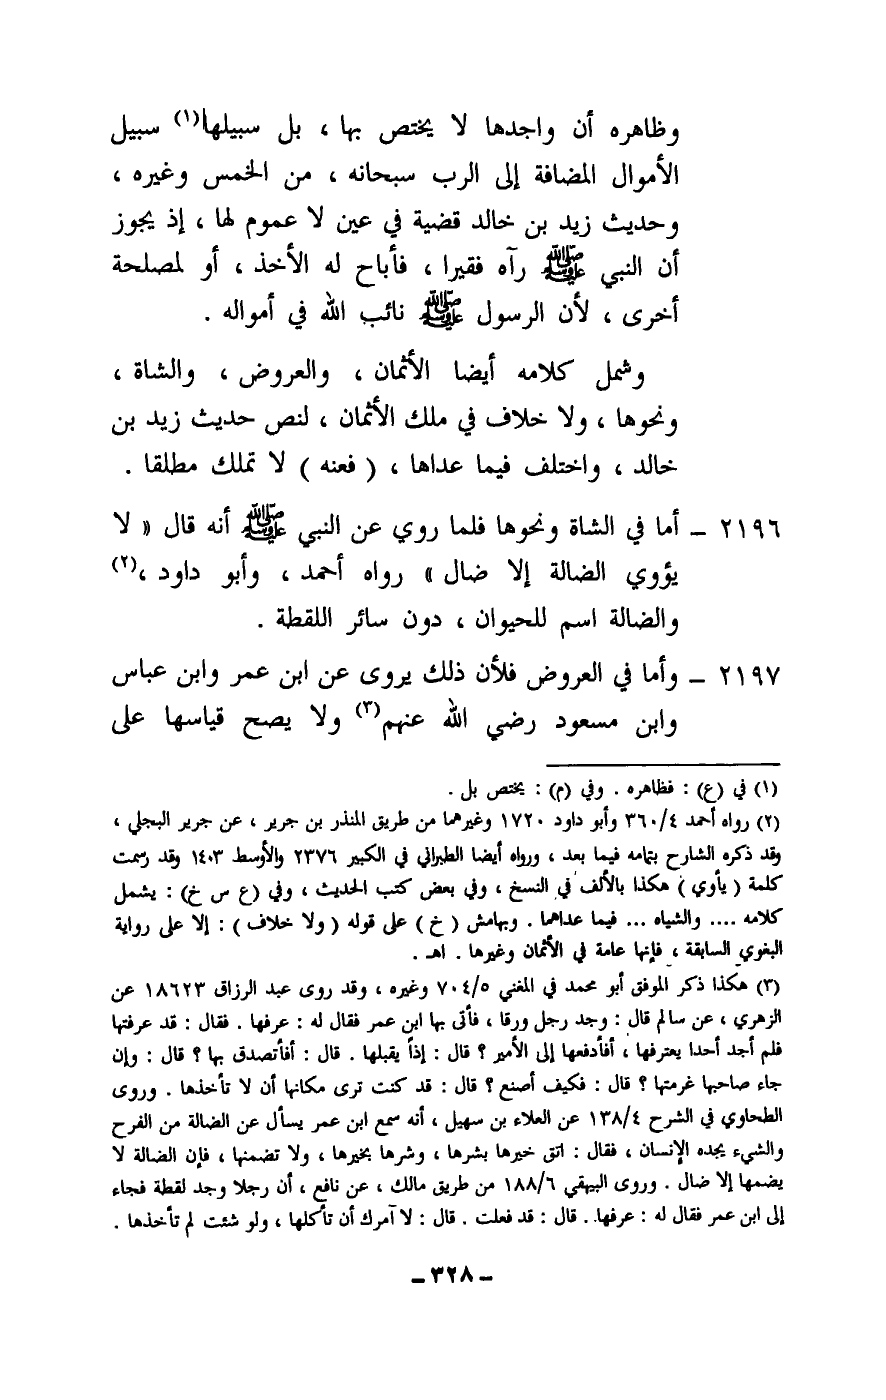 وظاهره أن واجدها لا يختص بها ، بل سبيلها(١) سبيل
الأموال المضافة إلى الرب سبحانه ، من الخمس وغيره ،
وحديث زيد بن خالد قضية في عين لا عموم لها ، إذ يجوز
أن النبي ﷺ رآه فقيرا ، فأباح له الأخذ ، أو لمصلحة
أخرى ، لأن الرسول ﷺ نائب الله في أمواله .
وشمل كلامه أيضا الأثمان ، والعروض ، والشاة ،
ونحوها ، ولا خلاف في ملك الأثمان ، لنص حديث زيد بن
خالد ، واختلف فيما عداها ، ( فعنه ) لا تملك مطلقا .
٢١٩٦ – أما في الشاة ونحوها فلما روي عن النبي ﷺ أنه قال « لا
يؤوي الضالة إلا ضال » رواه أحمد ، وأبو داود ،(٢)
والضالة اسم للحيوان ، دون سائر اللقطة .
٢١٩٧ – وأما في العروض فلأن ذلك يروى عن ابن عمر وابن عباس
وابن مسعود رضي الله عنهم(٣) ولا يصح قياسها على
(١) في (ع) : فظاهره . وفي (م) : يختص بل .
(٢) رواه أحمد ٣٦٠/٤ وأبو داود ١٧٢٠ وغيرهما من طريق المنذر بن جرير ، عن جرير البجلي ،
وقد ذكره الشارح بتمامه فيما بعد ، ورواه أيضا الطبراني في الكبير ٢٣٧٦ والأوسط ١٤٠٣ وقد رسمت
كلمة ( يأوي ) هكذا بالألف في النسخ ، وفي بعض كتب الحديث ، وفي (ع س خ) : يشمل
كلامه .... والشياه ... فيما عداهما . وبهامش ( خ ) على قوله ( ولا خلاف ) : إلا على رواية
البغوي السابقة ، فإنها عامة في الأثمان وغيرها . اهـ .
(٣) هكذا ذكر الموفق أبو محمد في المغني ٧٠٤/٥ وغيره ، وقد روى عبد الرزاق ١٨٦٢٣ عن
الزهري ، عن سالم قال : وجد رجل ورقا ، فأتى بها ابن عمر فقال له : عرفها . فقال : قد عرفتها
فلم أجد أحدا يعترفها ، أفأدفعها إلى الأمير ؟ قال : إذاً يقبلها . قال : أفأتصدق بها ؟ قال : وإن
جاء صاحبها غرمتها ؟ قال : فكيف أصنع ؟ قال : قد كنت ترى مكانها أن لا تأخذها . وروى
الطحاوي في الشرح ١٣٨/٤ عن العلاء بن سهيل ، أنه سمع ابن عمر يسأل عن الضالة من الفرح
والشيء يجده الإنسان ، فقال : اتق خيرها بشرها ، وشرها بخيرها ، ولا تضمنها ، فإن الضالة لا
يضمها إلا ضال . وروى البيهقي ١٨٨/٦ من طريق مالك ، عن نافع ، أن رجلا وجد لقطة فجاء
إلى ابن عمر فقال له : عرفها . قال : قد فعلت . قال : لا آمرك أن تأكلها ، ولو شئت لم تأخذها .
– ٣٢٨ –